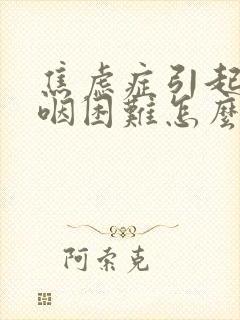 焦虑症引起
咽困難怎麼
阿索克